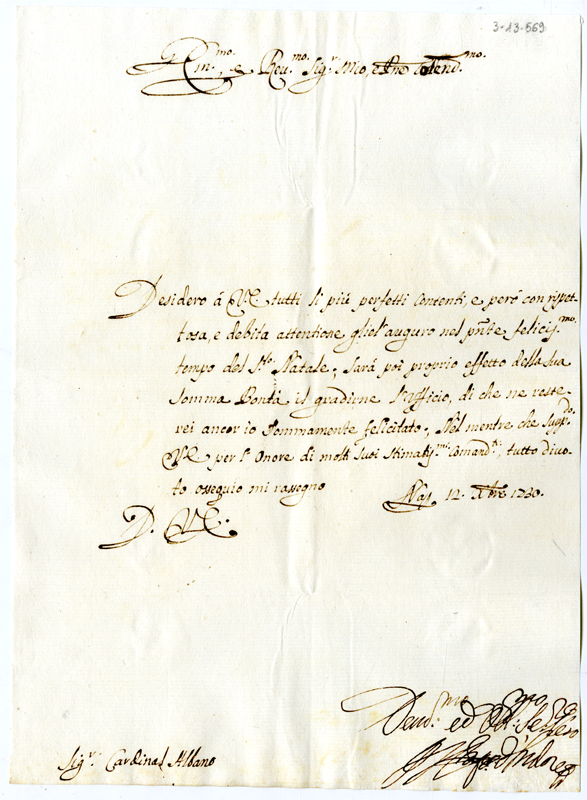 3-13-569
Em.mo, e Reu.mo Sig.r Mio, e Pne Colend.mo
Desidero á VE. tutti li piú perfetti Contenti, e peró con rispet-
tosa, e debita attentione gliel'auguro nel pñte felicis.mo
tempo del S.to Natale; Sará poi proprio effetto della Sua
Somma Bontá il gradirne l'Ufficio, di che ne reste-
rei ancor io Sommamente felicitato; Nel mentre che Supp.do
VE. per l'Onore di molti Suoi Stimatis.mi Comand.ti, tutto diuo-
to osseguio mi rassegno
Nap. 12. Xbre 1730.
D. VE.
Deuot.mo ed Obl.mo Se
Sig.r Cardinal Albano